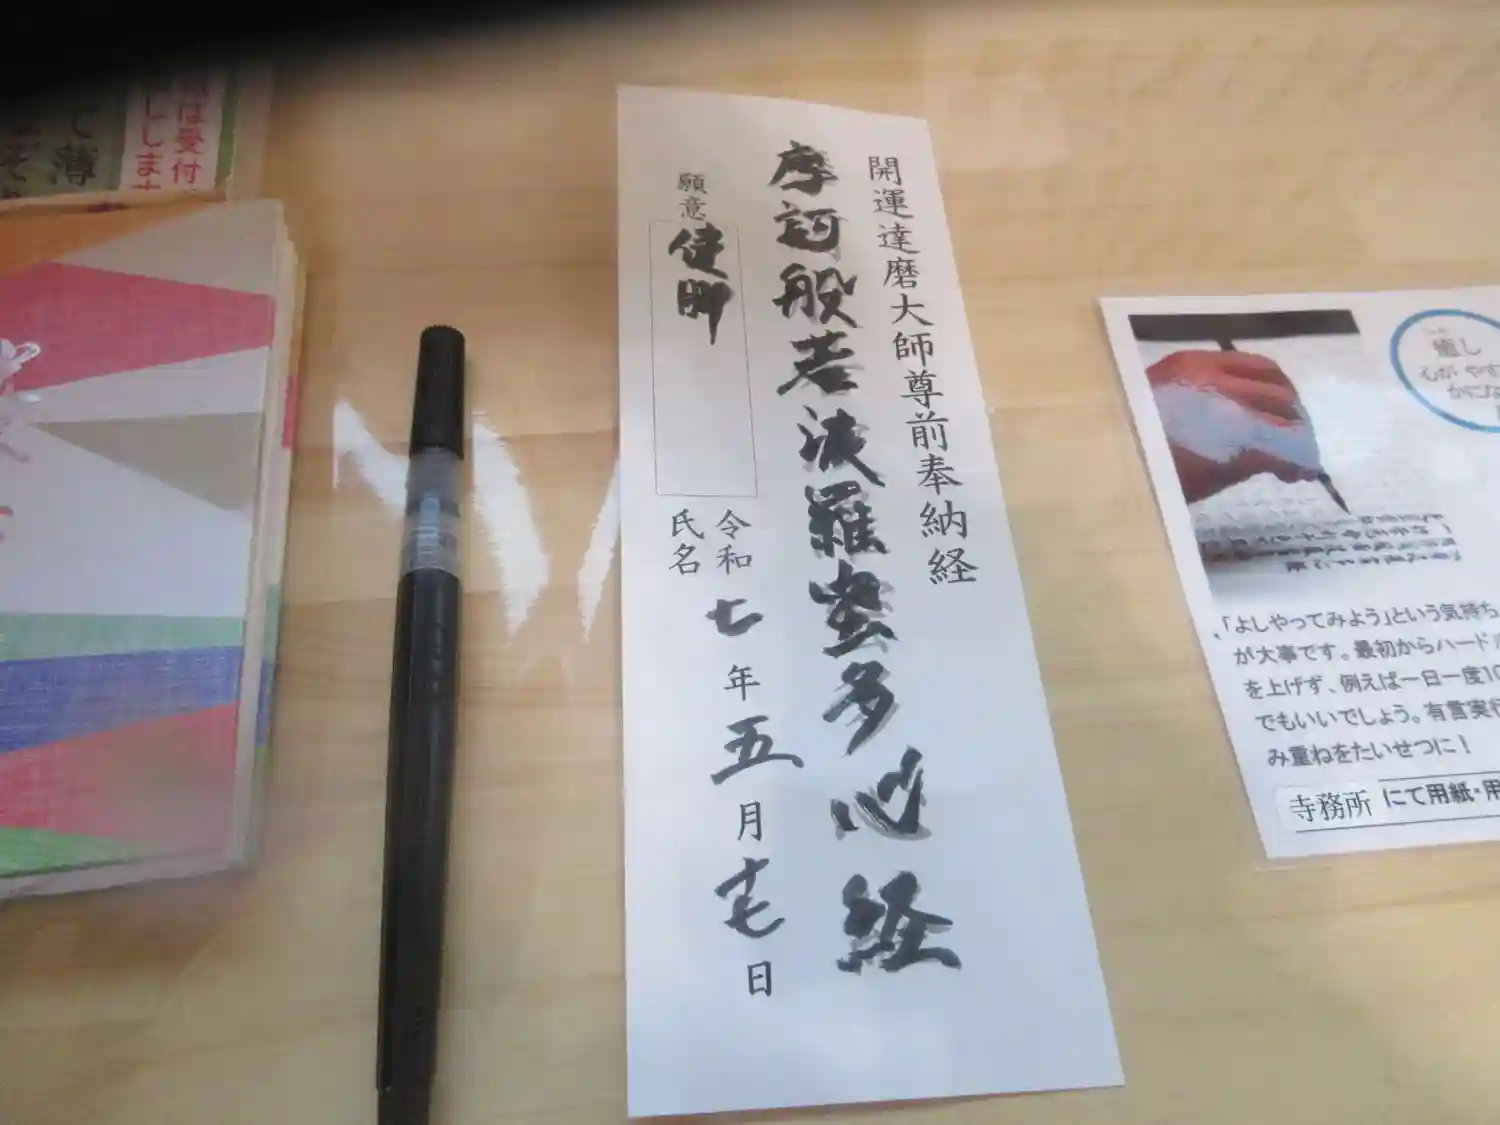 開運達磨大師尊前奉納経
摩訶般若波羅蜜多心経
願意
健脚
令和七年五月十七日
氏名
は受付
します
て薄
癒し
心がやす
かにな
「よしやってみよう」という気持ち
が大事です。最初からハードル
を上げず、例えば一日一度10
でもいいでしょう。有言実行
み重ねをたいせつに！
寺務所にて用紙・用